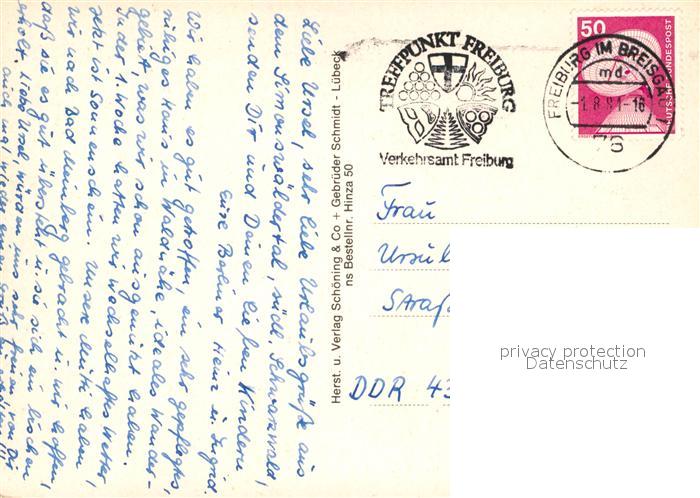 Liebe Ursel, sehr liebe Urlaubsgrüße aus
dem Simonswäldertal, südl. Schwarzwald,
senden Dir und Deinen lieben Kindern
Eure Berliner Heinz u. Ingrid.
Wir haben es gut getroffen, ein sehr gepflegtes,
ruhiges Haus in Waldnähe, ideales Wander-
gebiet, was wir schon ausgenützt haben.
In der 1. Woche hatten wir wechselhaftes Wetter
jetzt ist Sonnenschein. Unsere Mutti haben
wir nach Bad Meinberg gebracht u. wir hoffen,
daß sie es gut übersteht u. sie sich ein bischen
erholt. Liebe Ursel würden uns sehr freuen von Dir
auch mal wieder einen Gruß
Herst. u. Verlag Schöning & Co + Gebrüder Schmidt - Lübeck
ns Bestellnr. Hinza 50
TREFFPUNKT FREIBURG
Verkehrsamt Freiburg
FREIBURG IM BREISGA
md
-1.8.81-16
78
50
DEUTSCHE BUNDESPOST
Frau
Ursul
Straß
DDR 43
privacy protection
Datenschutz